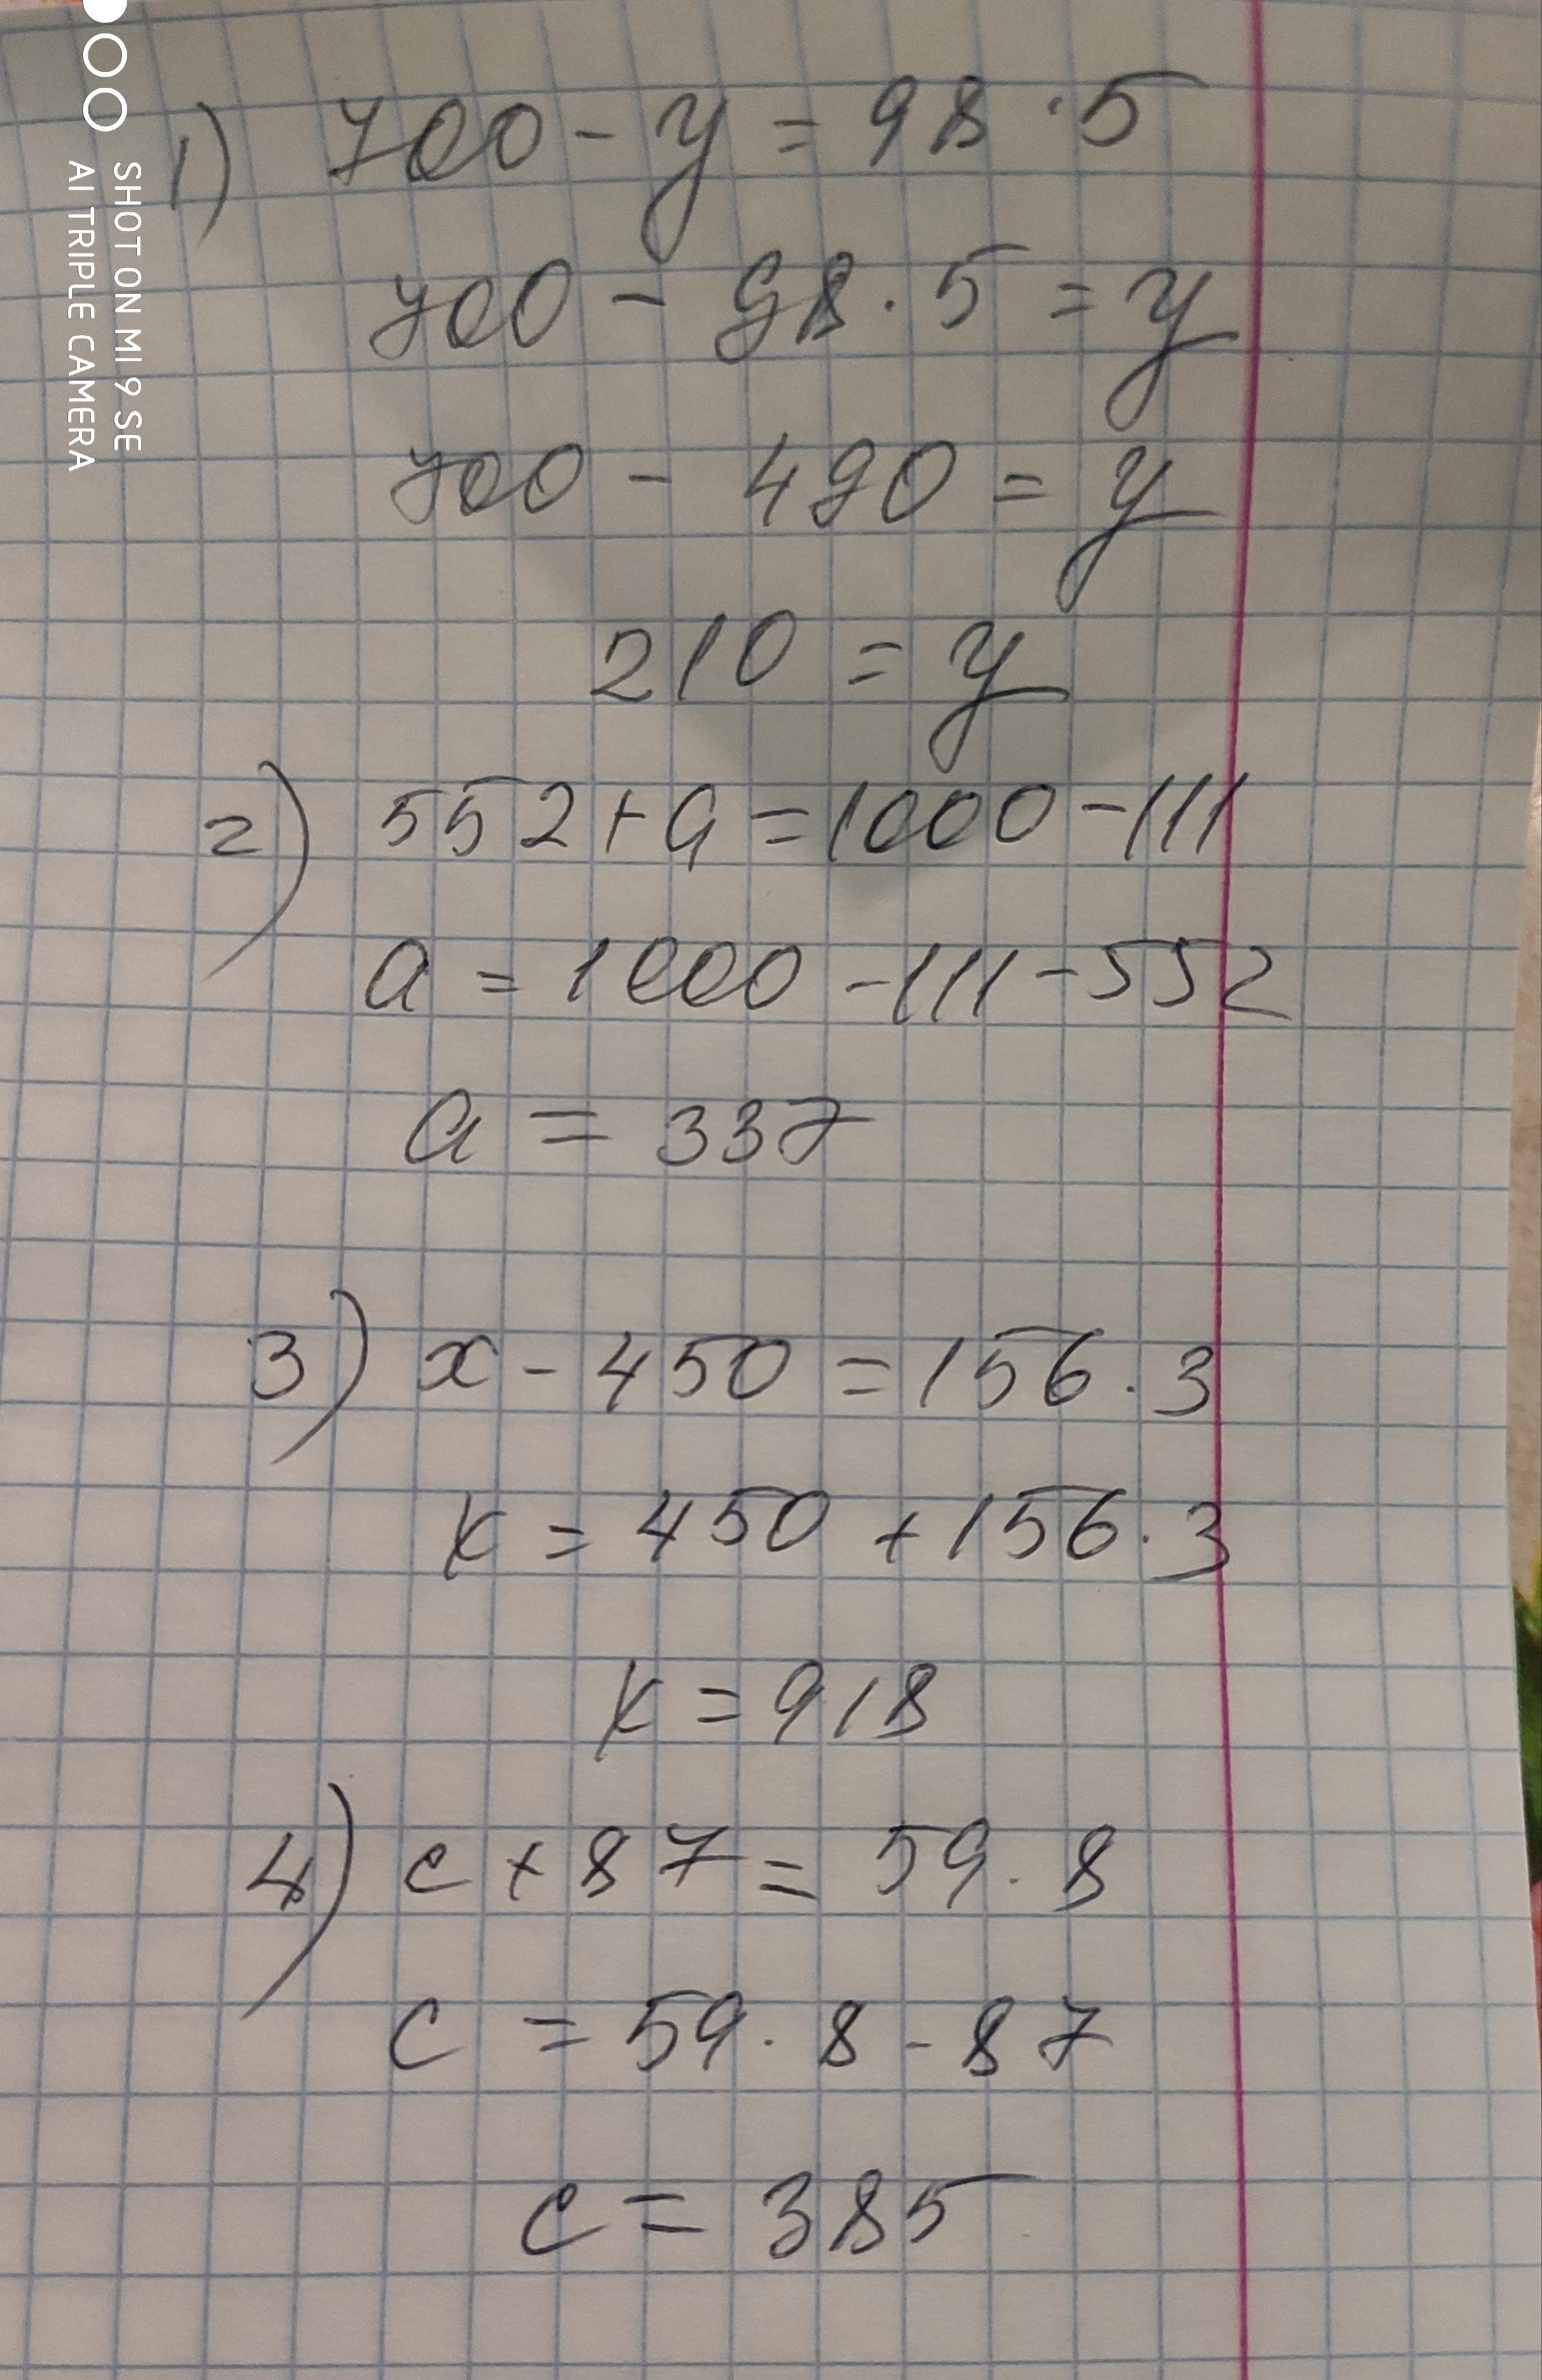 1) 700 - y = 98 · 5
700 - 98 · 5 = y
700 - 490 = y
210 = y
2) 552 + a = 1000 - 111
a = 1000 - 111 - 552
a = 337
3) x - 450 = 156 · 3
x = 450 + 156 · 3
x = 918
4) c + 87 = 59 · 8
c = 59 · 8 - 87
c = 385
SHOT ON MI 9 SE
AI TRIPLE CAMERA